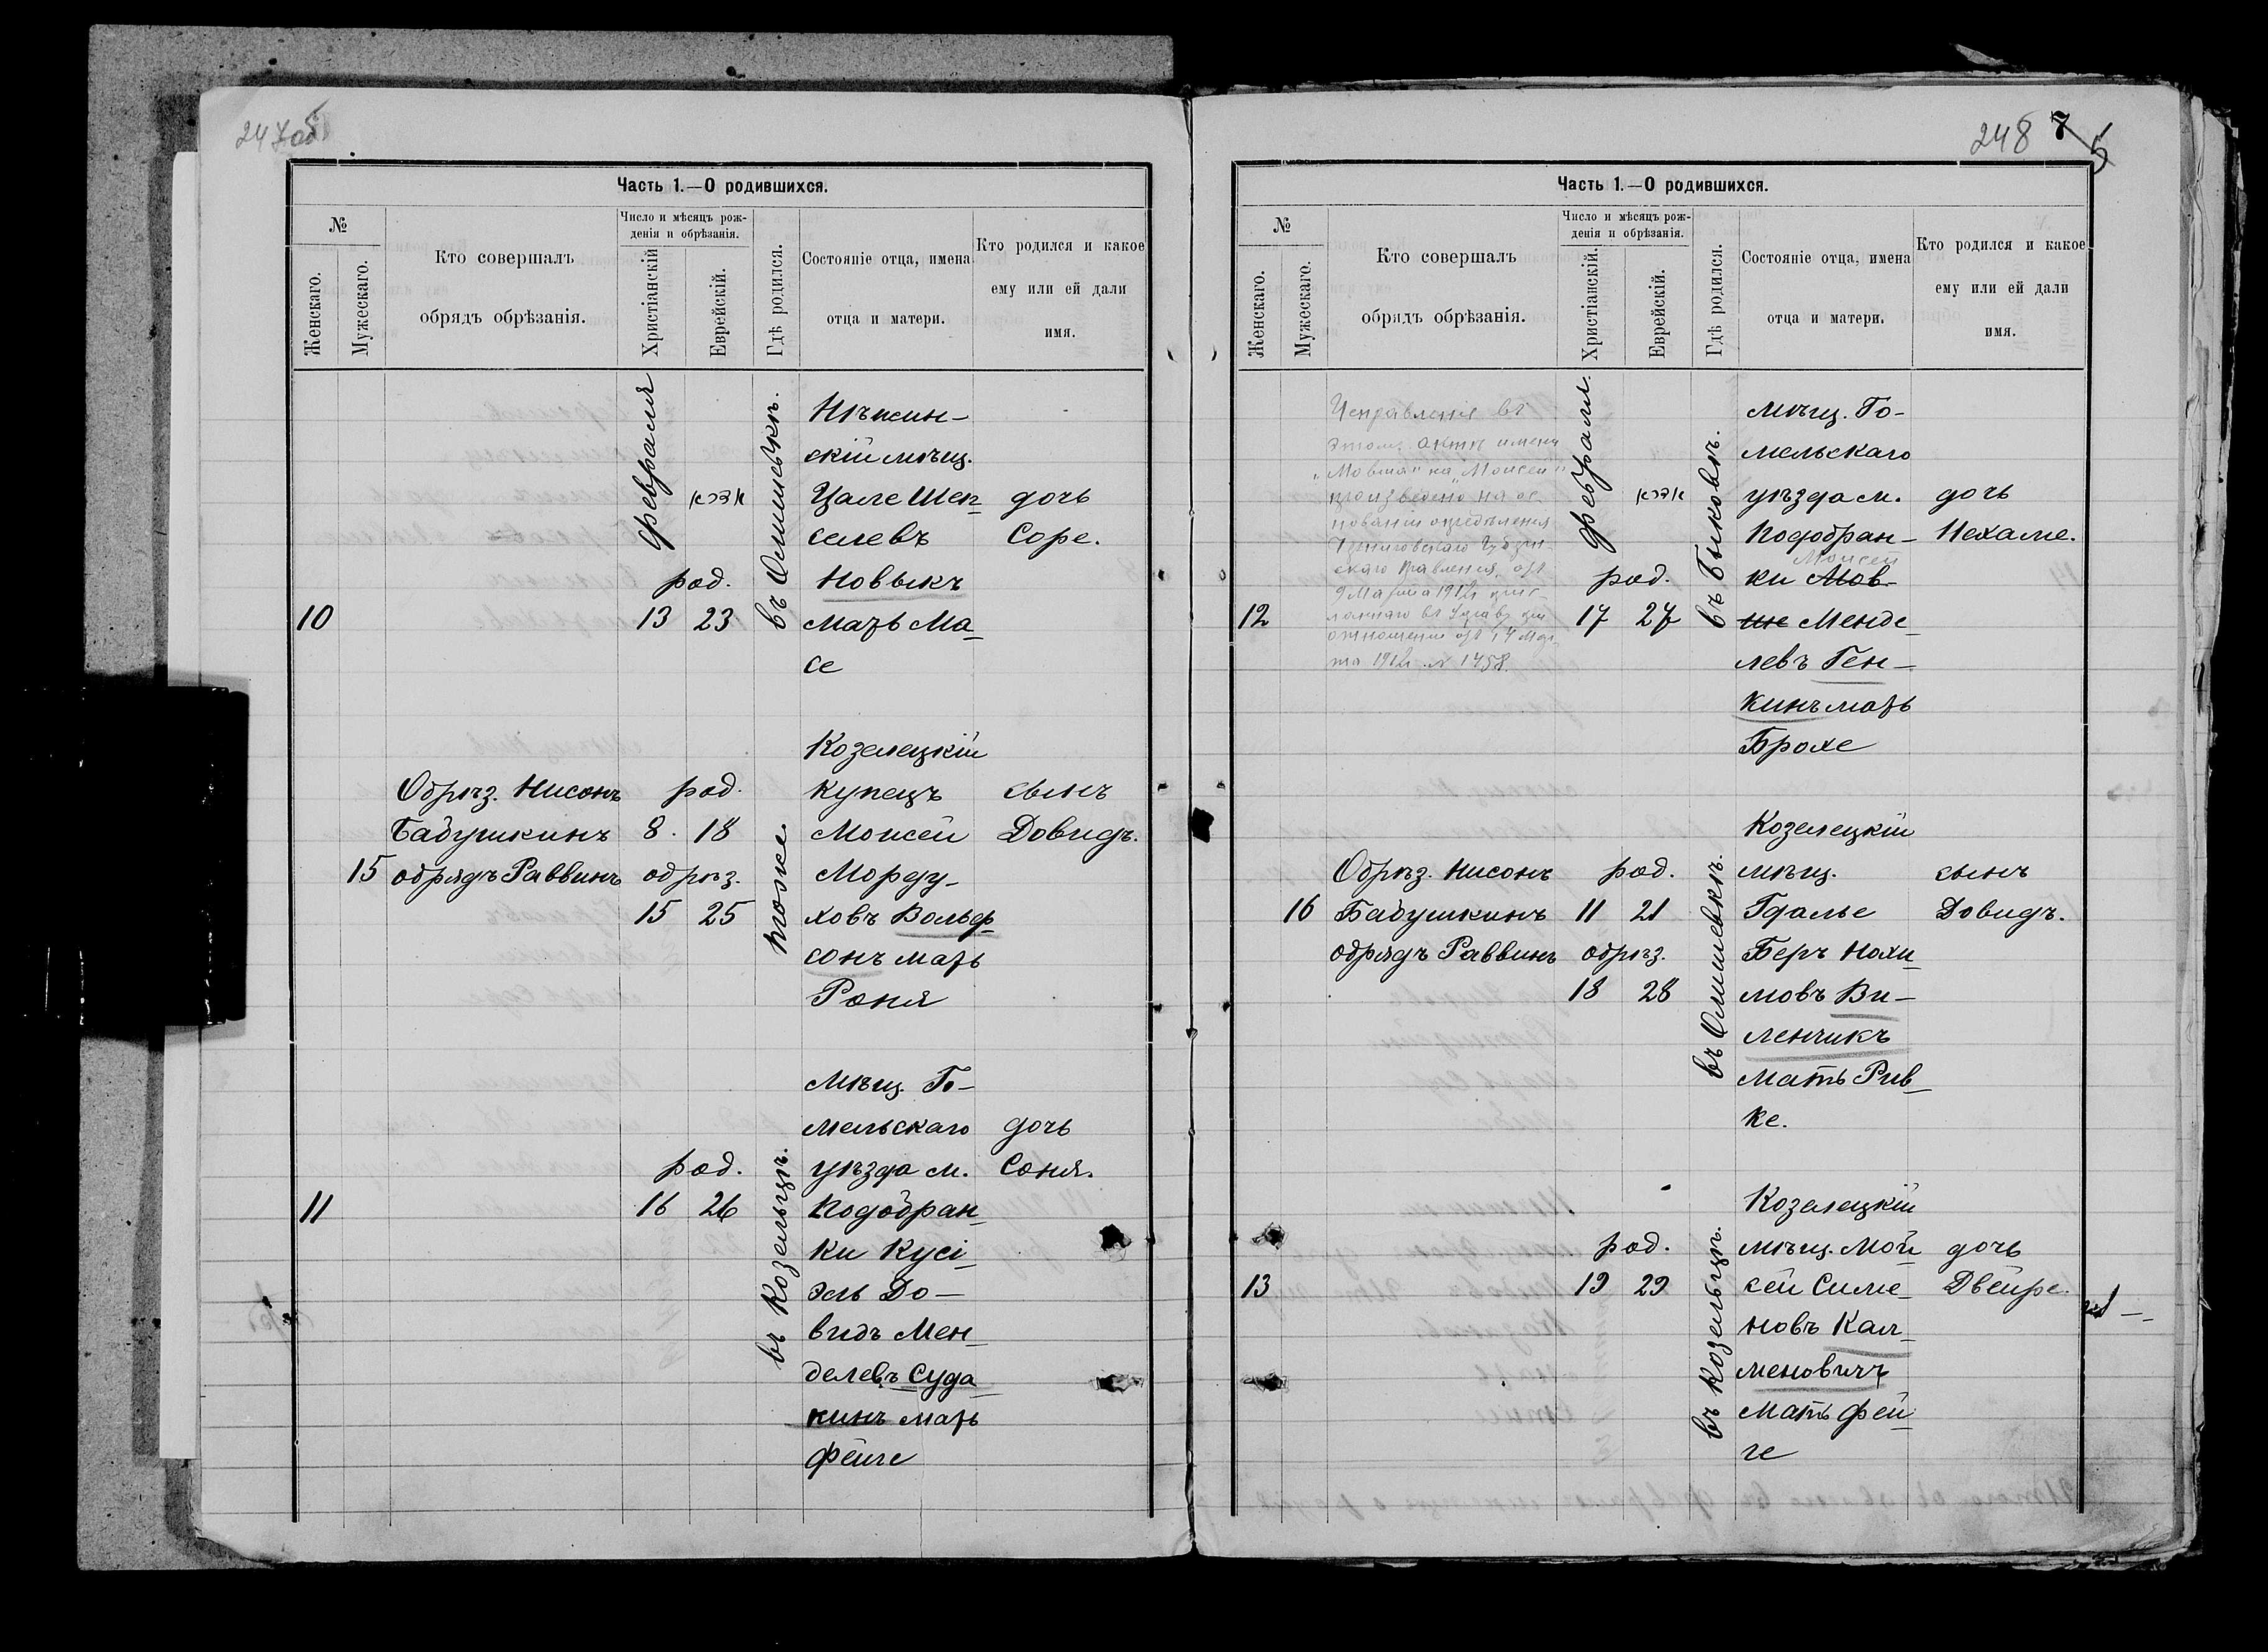 247об
Часть 1.—О родившихся.
№
Женскаго.
Мужескаго.
Кто совершалъ
обрядъ обрѣзанія.
Число и мѣсяцъ рож-
денія и обрѣзанія.
Христіанскій
Еврейскій.
Гдѣ родился.
Состояніе отца, имена
отца и матери.
Кто родился и какое
ему или ей дали
имя.
10
Февраля
род.
13 23
въ Олишевкѣ.
Нѣжин-
скій мѣщ.
Цале Шеп-
селевъ
Новыкъ
мать Ма-
се
дочь
Соре.
15
Обрѣз. Нисонъ
Бабушкинъ
обрядъ Раввинъ
род.
8. 18
обрѣз.
15 25
тоже.
Козелецкій
купецъ
Моисей
Морду-
ховъ Вольф-
сонъ мать
Роня
сынъ
Довидъ.
11
род.
16 26
въ Козельцѣ.
Мѣщ. Го-
мельскаго
уѣзда м.
Подобран-
ки Кусі-
эль До-
видъ Мен-
делевъ Суда-
кинъ мать
Фейге
дочь
Соня.
248 7 5
Часть 1.—О родившихся.
№
Женскаго.
Мужескаго.
Кто совершалъ
обрядъ обрѣзанія.
Число и мѣсяцъ рож-
денія и обрѣзанія.
Христіанскій.
Еврейскій.
Гдѣ родился.
Состояніе отца, имена
отца и матери.
Кто родился и какое
ему или ей дали
имя.
12
Исправленіе въ
этомъ актѣ имени
„Мовша" на „Моисей"
произведено на ос-
нованіи опредѣленія
Черниговскаго Губерн-
скаго Правленія, отъ
9 Марта 1912г.
отношеніи отъ 14 Мар-
та 1912г. № 1458.
Февраля.
род.
17 27
въ Быковѣ.
мѣщ. Го-
мельскаго
уѣзда м.
Подобран-
Моисей
ки Мов-
ше Менде-
левъ Ген-
кинъ мать
Брохе
дочь
Нехаме.
16
Обрѣз. Нисонъ
Бабушкинъ
обрядъ Раввинъ
род.
11 21
обрѣз.
18 28
въ Олишевкѣ.
Козелецкій
мѣщ.
Гдалье
Беръ Нохи-
мовъ Ви-
ленчикъ
мать Рив-
ке.
сынъ
Довидъ.
13
род.
19 29
въ Козельцѣ.
Козелецкій
мѣщ. Мой
сей Симе-
новъ Кал-
меновичъ
мать Фей-
ге
дочь
Двейре.